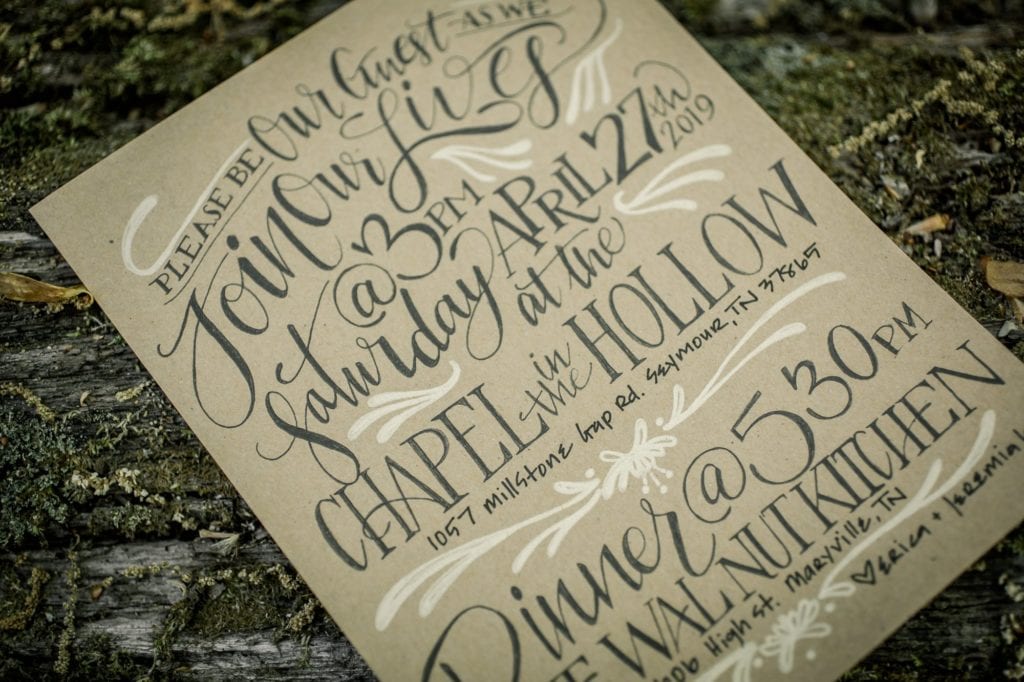 PLEASE BE OUR Guest AS WE
Join OUR Lives
@ 3PM
Saturday APRIL 27th 2019
at the
CHAPEL in the HOLLOW
1057 Millstone Gap Rd. Seymour, TN 37865
Dinner @ 530 PM
WALNUT KITCHEN
High St. Maryville, TN
♡ Erica + Jeremiah